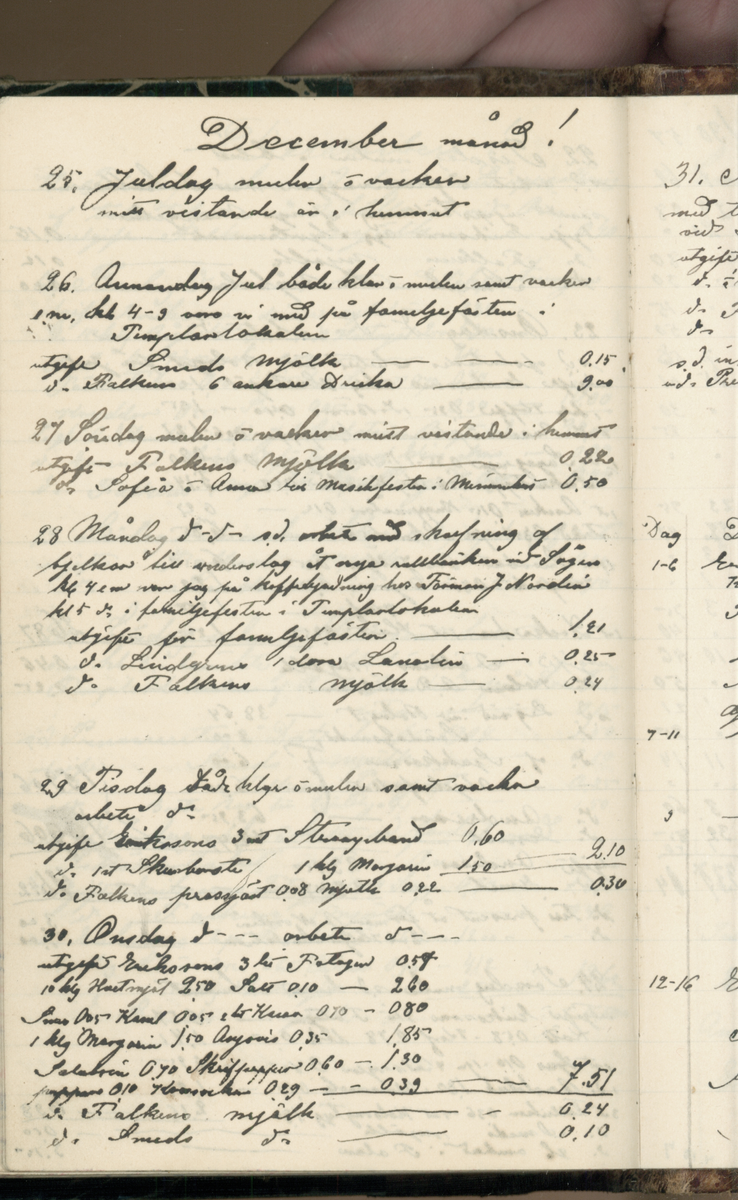 December månad!
25. Juldag mulen o vacker
mitt vistande är i hemmet
26. Annandag Jul både klar o mulen samt vacker
em. kl 4-9 voro vi med på familjefästen i
Templarlokalen
utgift Smeds Mjölk 0,15
do Falkens 6 ankare Dricka 9,00
27 Söndag mulen o vacker mitt vistande i hemmet
utgift Falkens Mjölk 0,22
do Sofia o Anna till Musikfesten i 0,50
28 Måndag d-d- s.d. arbete med skafning af
bjelkar till underslag åt nya vid Sågen
kl 4 em var jag på kaffebjudning hos Förman J. Nordin
kl 5 do i familjefesten i Templarlokalen
utgift för familjefästen 1,21
do Lindgrens 1 dosa Lanolin 0,25
do Falkens mjölk 0,24
29 Tisdag både klar o mulen samt vacker
arbete do
utgift Erikssons 3 0,60
do 1 st Skurborste 1 klg Margarin 1,50 2.10
do Falkens pressjäst 0,08 mjölk 0,22 0,30
30. Onsdag d--- arbete d---
utgift Erikssons 3 lit Fotogen 0,54
10 klg 2,50 Salt 0,10 - 2,60
0,05 Kanel 0,05 0,70 - 0,80
1 klg Margarin 1,50 0,35 1,85
0,70 Skrifpapper 0,60 - 1,30
peppar 0,10 0,29 - 0,39 7.51
do Falkens mjölk 0,24
do Smeds do 0,10
31.
med
vid
utgift
do
do
do
s.d.
Dag
1-6
7-11
12-16